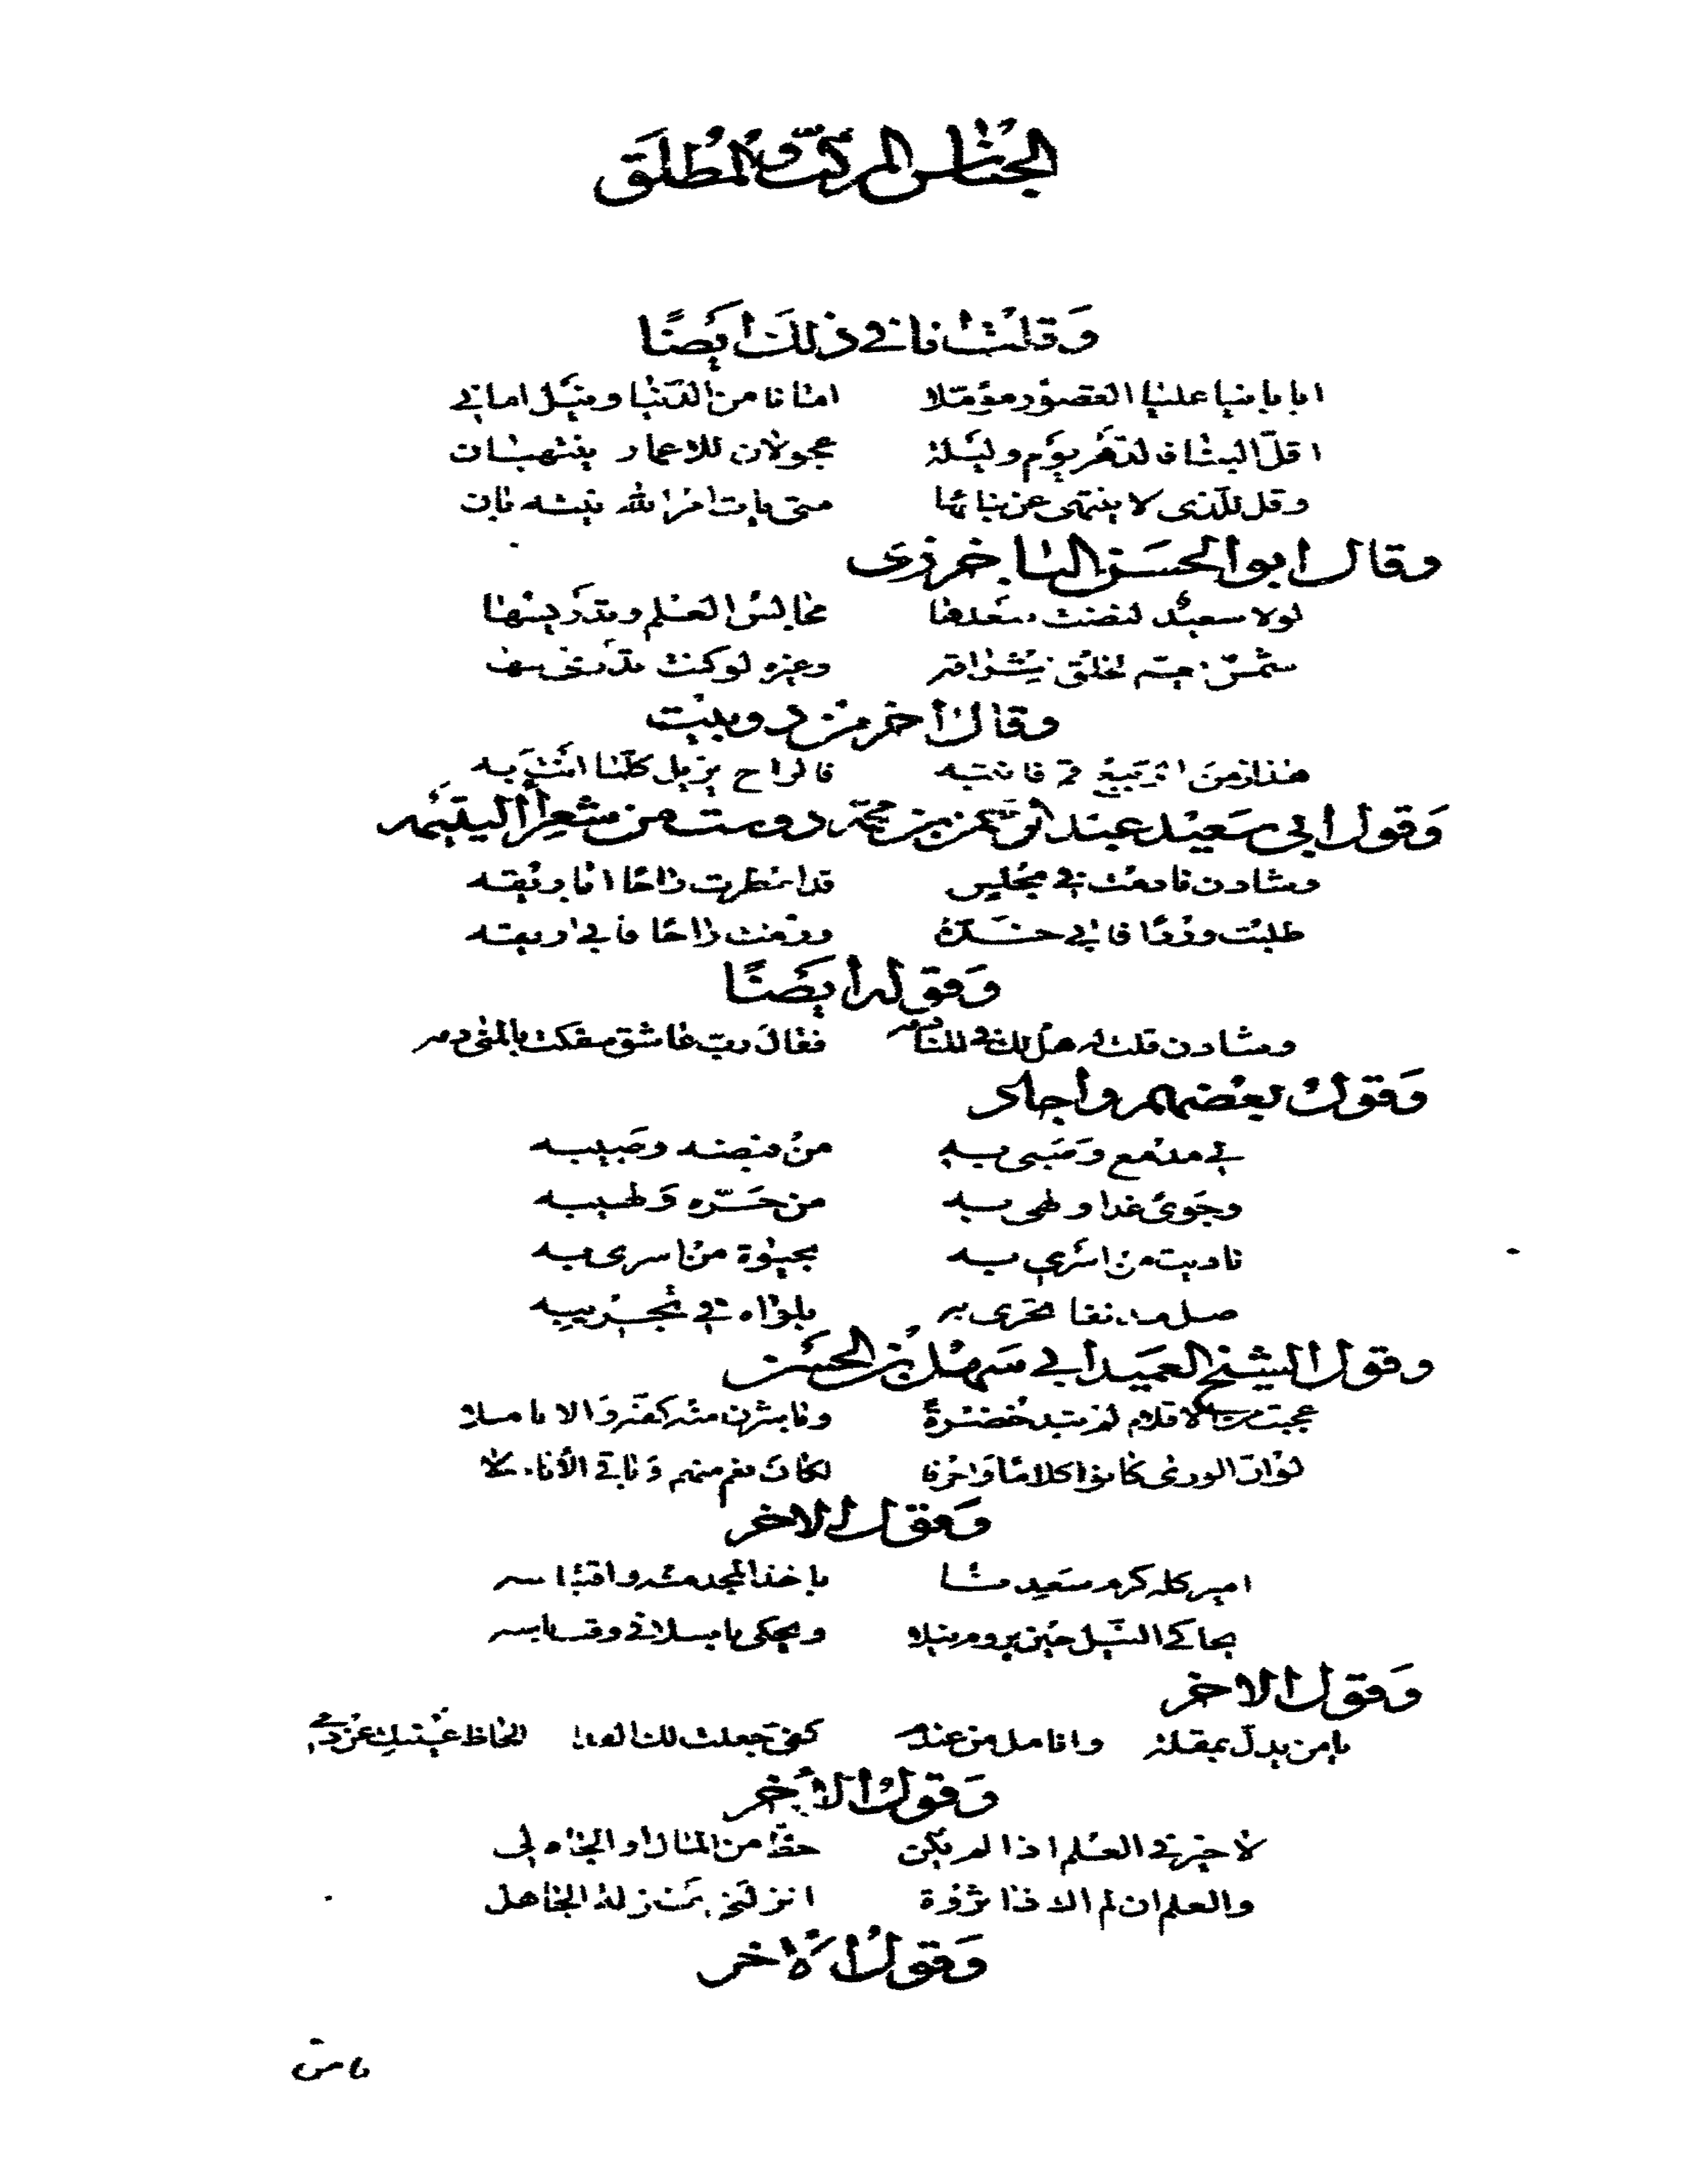 الجناس المركب والمطلق
وقلت انا في ذلك ايضا
ايا بانيا عليا القصور مؤملا امانا من الدنيا ونيل اماني
اقل البنا فالدهر يوم وليلة عجولان للاعمار ينتهبان
وقل للذى لا ينتهى عن بنائها متى يات امر الله بنيته بان
وقال ابو الحسن الباخرزى
لولا سعيد لنضت مجالس العلم وتدريسها
وغيره لو كنت
وقال آخر من دوبيت
هذا زمن الربيع قم فانتبه فالراح يزيل كلما انت به
وقول ابي سعيد عبد الرحمن بن محمد دوست من شعراء اليتيمه
وشادن نادمت في مجلس قد امطرت راحا اباريقه
طلبت وردا فابي خده ورمت راحا فابي ريقه
وقوله ايضا
وشادن قلت له هل لك في المنادمه فقال رب عاشق سفكت بالمنى دمه
وقول بعضهم واجاد
في مدمع وصبى به من فيضه وصبيبه
وجوى غدا ولهى به من حره ولهيبه
ناديت من اسرى به بحيوة من اسرى به
صل تجرى به بلواه في تجريبه
وقول الشيخ العميد ابي سهل بن الحسن
عجبت من الاقلام لم تبد خضرة وباشرن منه كفه والاناملا
لو ان الورى كانوا كلاما واحرفا لكان نعم منهم وباقي الأنام لا
وقول الاخر
امير كله كرم سعدنا ياخذ المجد منه واقتباسه
يحاكى النيل حين يروم نيلا ويحكى باسلا في وقت باسه
وقول الاخر
يامن يدل بمقلة وانامل من عندم كفى جعلت لك الفدا الحاظ عينيك عن دمى
وقول الاخر
لا خير في العلم اذا لم يكن حظ من المال او الجاه لى
والعلم ان لم الا ذا ثروة انزلني بمنزلة الجاهل
وقول الآخر